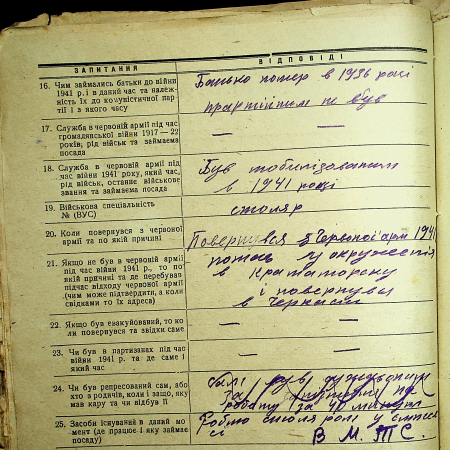 ЗАПИТАННЯ ВІДПОВІДІ
16. Чим займались батьки до війни
1941 р. і в даний час та належ-
ність їх до комуністичної пар-
тії і з якого часу
Батько помер в 1936 році
партійним не був
17. Служба в червоній армії під час
громадянської війни 1917—22
років, рід військ та займаема
посада
— —
18. Служба в червоній армії під
час війни 1941 року, який час,
рід військ, останне військове
звання та займаема посада
Був мобилізований
в 1941 році
19. Військова спеціальність
№ (ВУС)
столяр
20. Коли повернувся з червоної
армії та по якій причині
Повернувся з Червоної арм 1941
21. Якщо не був в червоній армії
під час війни 1941 р., то по
якій причині та де перебував
підчас відходу червоної армії
(чим може підтвердит, а коли
свідками то їх адреса)
у окружения
в
і повернувся
в Черкаси
22. Якщо був езакуйований, то ко
ли повернувся та звідки саме
— —
23. Чи був в партизанах під час
війни 1941 р. та де саме і
який час
— —
24. Чи був репресований сам, або
хто з родичів, коли і защо, яку
мав кару та чи відбув її
був
роботу за 40 минут
25. Засоби існування в даний мо
мент (де працює і яку займає
посаду)
Роблю столяром у
В М. Т С.